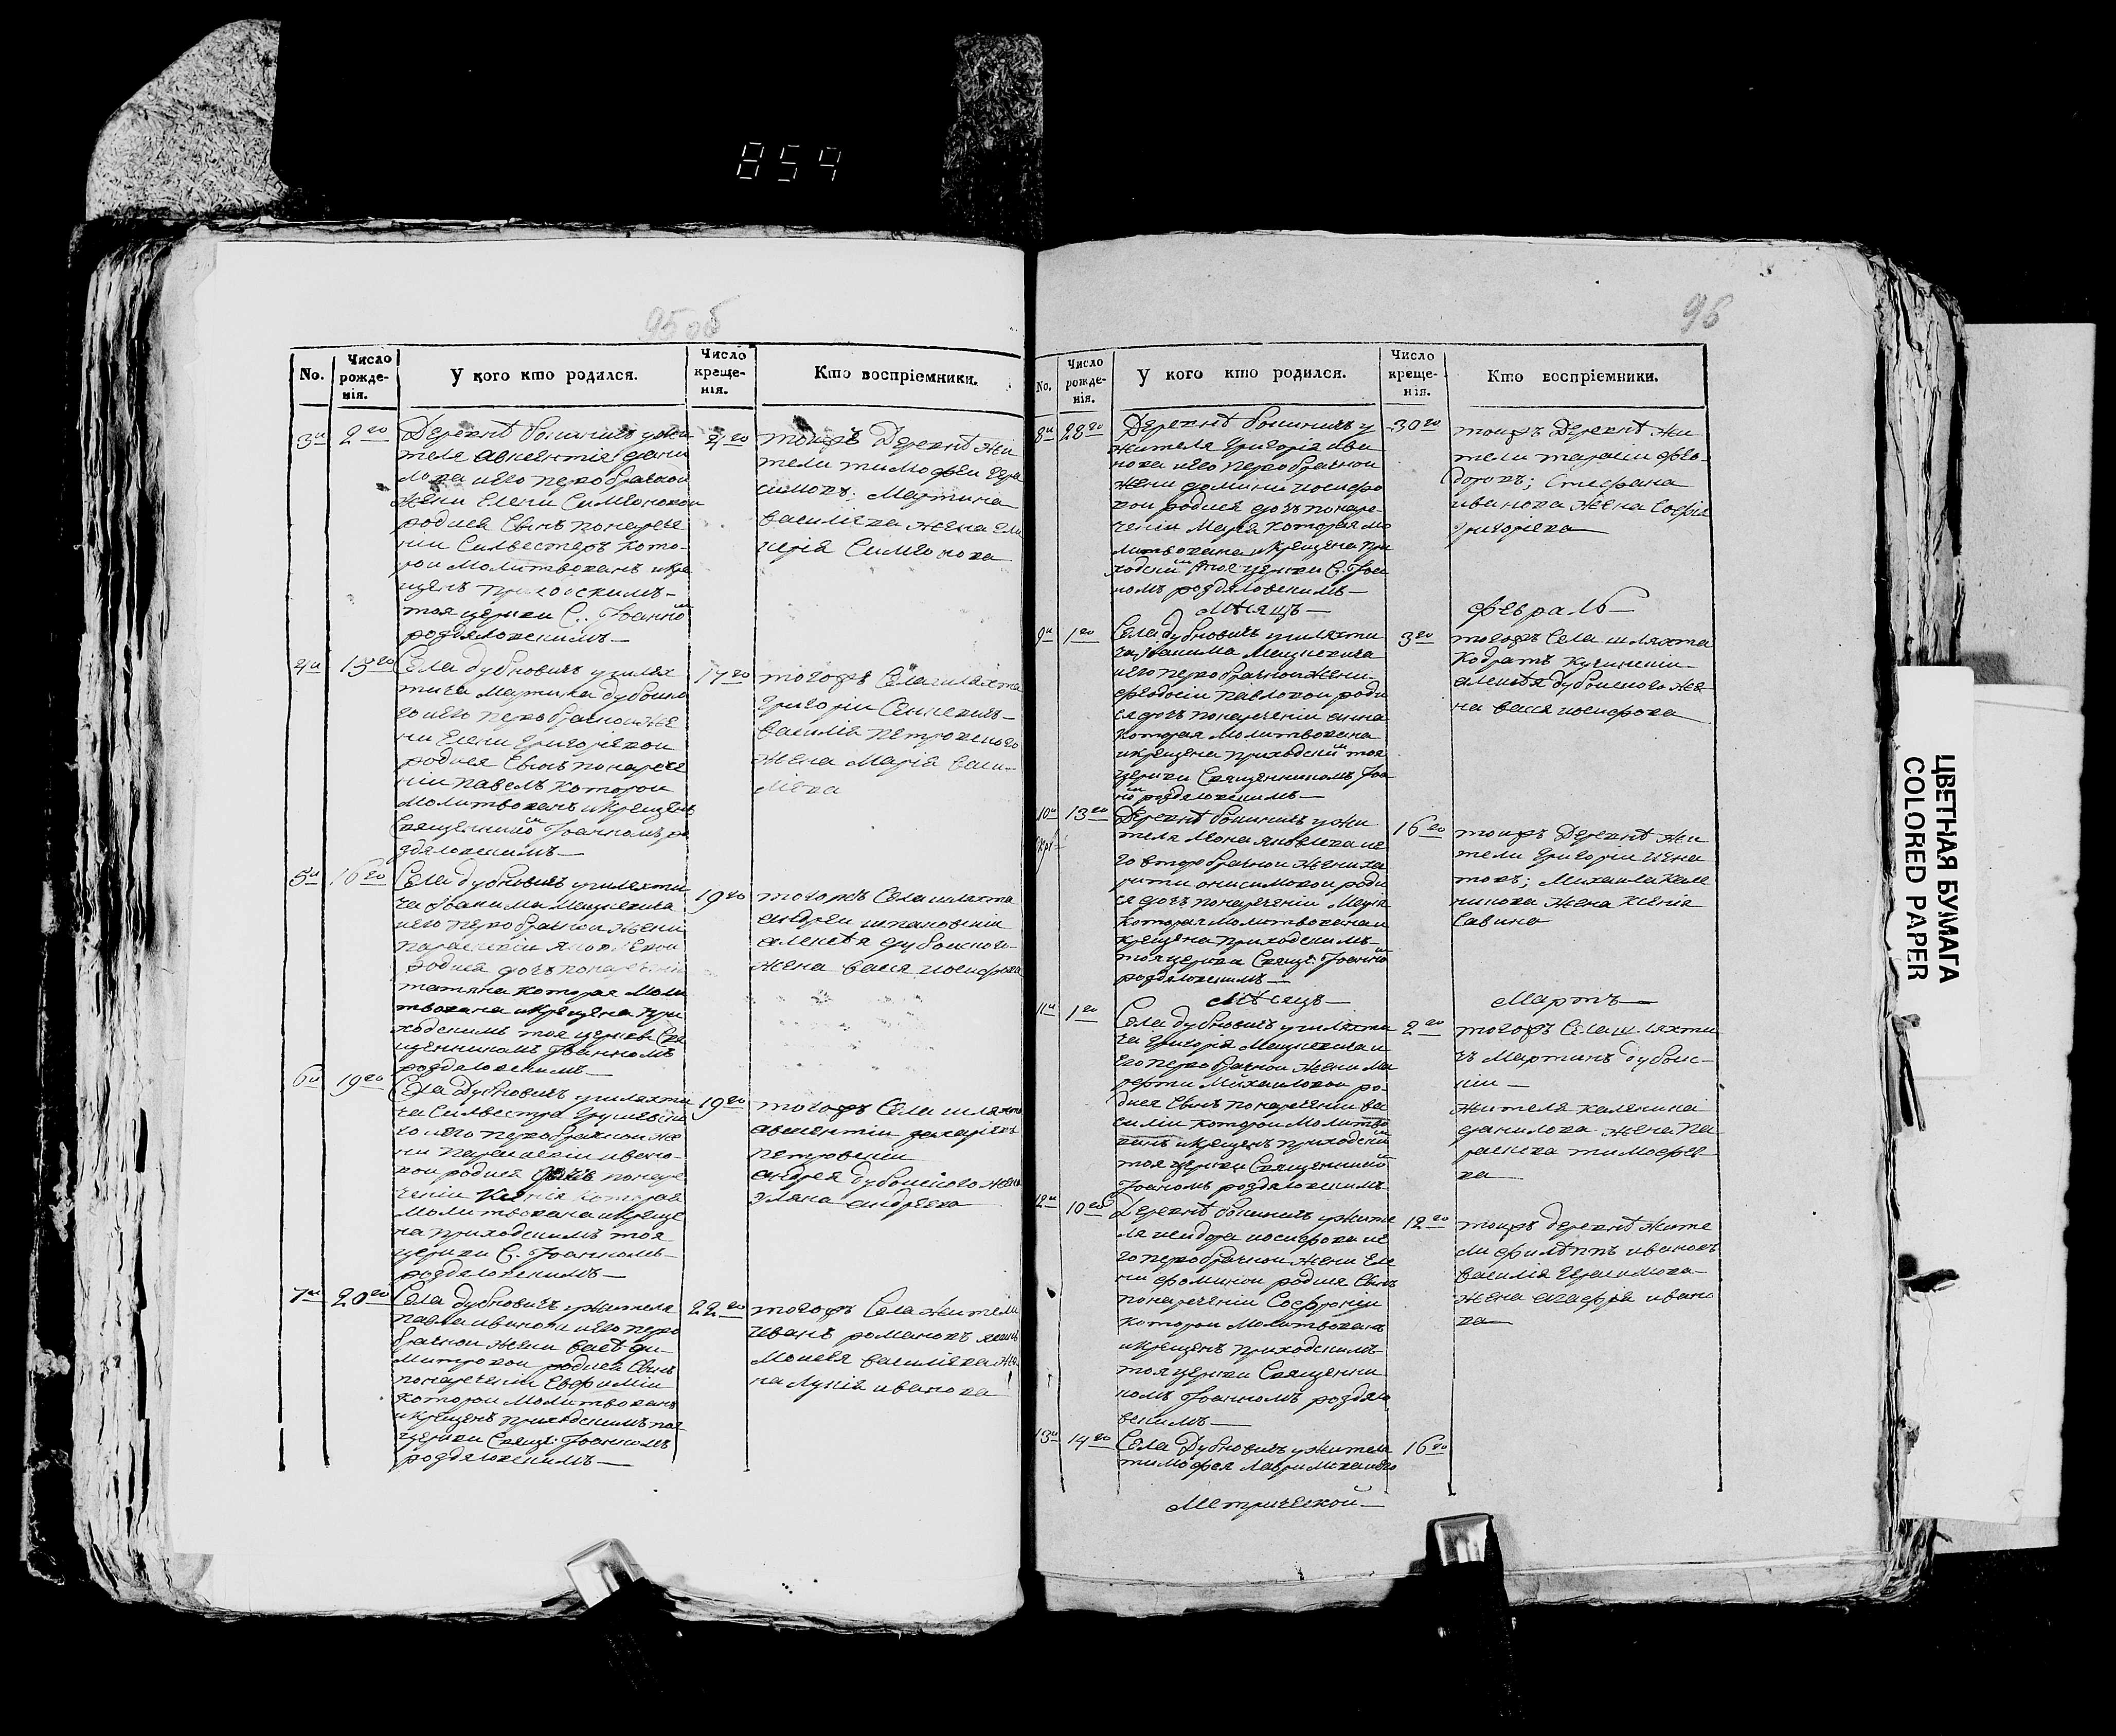 859
95 об
No.
Число рожденія.
У кого кто родился.
Число крещенія.
Кто воспріемники.
3й
2го
Деревнѣ
теля Авксентія Дани
лова и его первобрачной
жени Елени Симеоновой
родися Синъ понарече
ніи Силвестеръ кото-
рои молитвованъ и кре
щенъ приходскимъ-
тоя церкви С. Іоанно
роздяловскимъ
4го
тоиже Деревнѣ жи
тели тимофеи Гера
симовъ; Мартина
василіева жена
Симеонова
4й
13го
Села дубновичъ у шлях
тича Мартина дубоиц
го и его первобрачнои же
ни Елени Григоріевои
родися Синъ понарече
ніи павелъ которои
молитвованъ и крещенъ
Священни Іоанномъ ро
здяловскимъ
17го
тогожъ Села шляхта
Григори Сенкевичъ
василія петровского
жена Марія васи-
лієва
5й
16го
Села дубновичъ у шляхти
ча Іоакима Мацкевича
и его первобрачнои жени
параскевіи яковлевои
родися дочъ понареченіи
татяна которая моли
твована и крещена при
ходскимъ тоя церкви Свя
щенникомъ Іоанномъ
роздяловскимъ
19го
тогожъ Села шляхта
андреи шпаковскіи
алексѣя дубоиского
жена васся иосифова
6й
19го
Села Дубновичъ у шляхти
ча Силвестра
го и его первобрачнои же
ни Параскевіи ивано-
вои родися дочъ понаре
ченіи Ксенія которая
молитвована и креще
на приходскимъ тоя
церкви С. Іоанномъ
роздяловскимъ
19го
тогожъ Села шляхта
авксентіи захаріевъ
петровскіи
андрея дубоиского жена
уляна андреева
7й
20го
Села дубновичъ у жителя
павла иванова и его перво
брачнои жени васѣ ди-
митровои родися Синъ
понареченіи Евфиміи
которои молитвованъ
и крещенъ приходскимъ тоя
церкви Свящ: Іоанномъ
роздяловскимъ
22го
тогожъ Села жители
иванъ романовъ
Моисея василіева же
на Лукія иванова
96
No.
Число рожденія.
У кого кто родился.
Число крещенія.
Кто воспріемники.
8й
28го
Деревнѣ у
жителя Григорія ива
нова и его первобрачнои
жени домини иосифо
вои родися дочъ понаре-
ченіи Марія которая мо
литвована и крещена при
ходски тоя церкви С. Іоан
номъ роздяловскимъ
30го
тоижъ Деревнѣ жи
тели тарасіи фео-
доровъ; Стефана
иванова жена Софія
григорева
Мѣсяцъ
февраль
9й
1го
Села дубновичъ у шляхти
ча Іоакима Мацкевича
и его первобрачнои жени
феодосіи павловои роди
ся дочъ понареченіи анна
которая молитвована
и крещена приходски тоя
церкви Священникомъ Іоа
но роздяловскимъ
3го
тогожъ Села шляхта
Кодратъ Кучинскіи
алексѣя дубоиского же
на васся иосифова
10й
13го
Деревнѣ у жи
теля Мона яковлева и е
го второбрачнои жени ха
рити онисимовои роди
ся дочъ понареченіи Марія
которая молитвована и
крещена приходскимъ
тоя церкви Свящ: Іоанно
роздяловскимъ
16го
тоижъ Деревнѣ жи
тели Григоріи игна
товъ; Михаила кале
никова жена Ксенія
Савина
Мѣсяцъ
Мартъ
11й
1го
Села дубновичъ у шляхти
ча Григорія Мацкевича и
его первобрачнои жени Ма
рфти Михаиловои ро-
дися Синъ понареченіи ва
силіи которои молитво
ванъ и крещенъ приходски
тоя церкви Священнико
Іоаномъ роздяловскимъ
2го
тогожъ Села шляхти
чъ Мартинъ дубоис-
кіи
жителя каленика
данилова жена Па
раскева тимофее
ва
12й
10го
Деревнѣ у жите
ля исидора иосифова и е
го первобрачнои жени Еле
ни фоминои родися Синъ
понареченіи Софроніи
которои молитвованъ
и крещенъ приходскимъ
тоя церкви Священни
комъ Іоанномъ роздяло
вскимъ
12го
тоижъ деревнѣ жите
ли филѣппъ ивановъ
василія Герасимова
жена агафія ивано
ва
13й
14го
Села Дубновичъ у жителя
тимофея и его
16го
Метрической
ЦВЕТНАЯ БУМАГА
COLORED PAPER